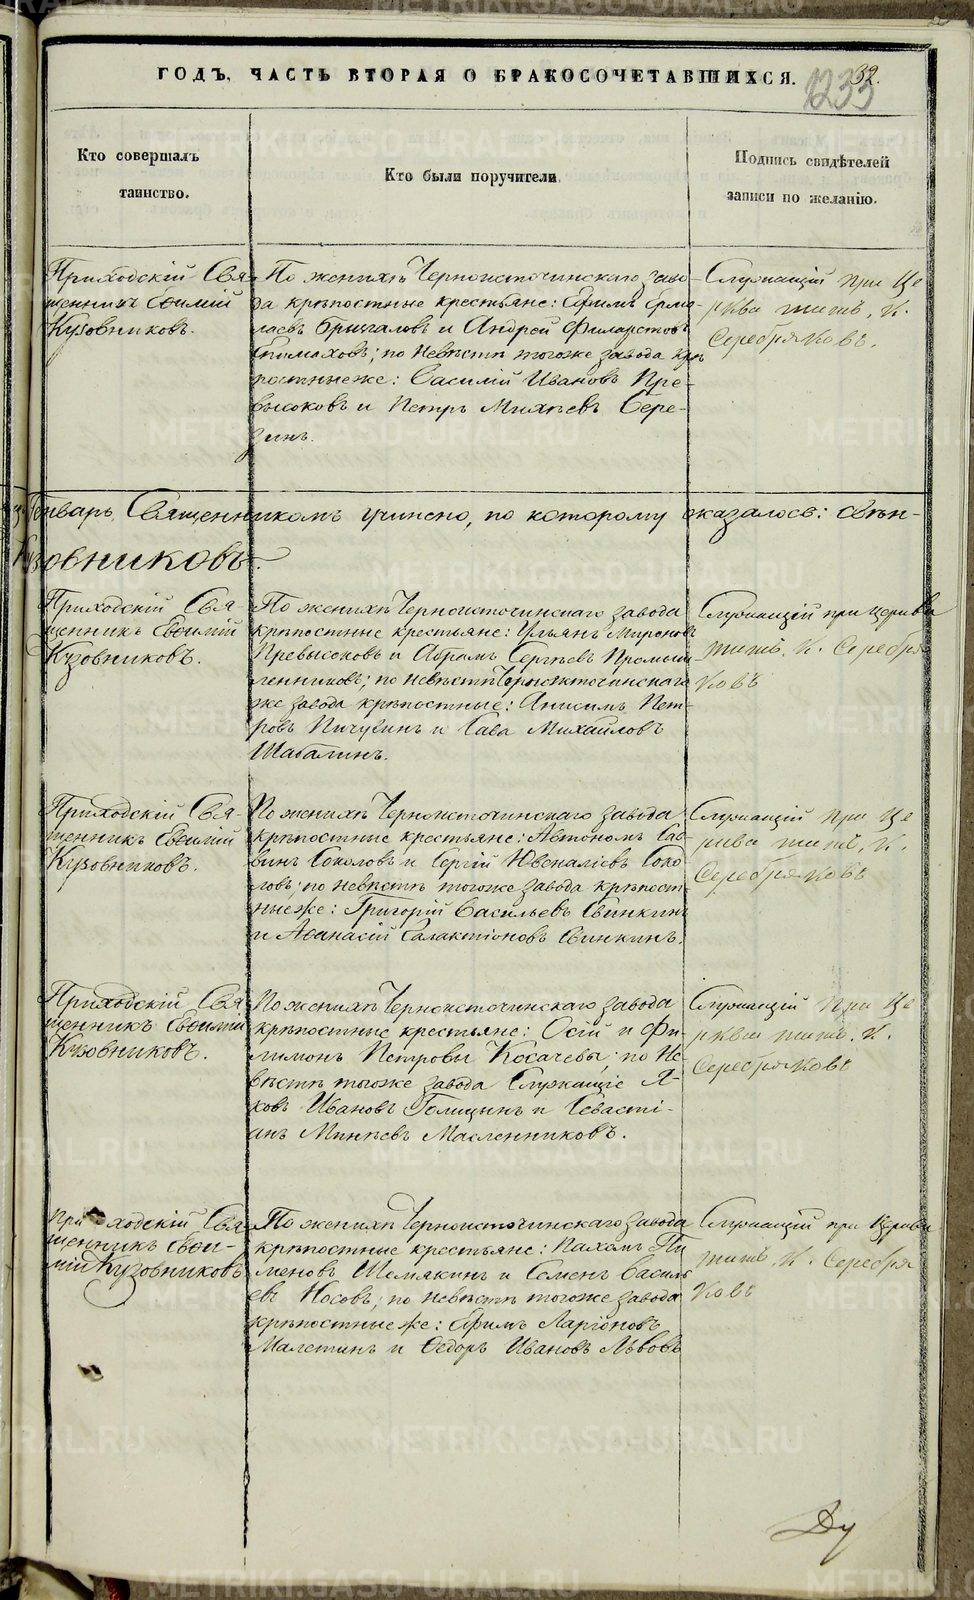 ГОДЪ, ЧАСТЬ ВТОРАЯ О БРАКОСОЧЕТАВШИХСЯ.
32.
1233
Кто совершалъ
таинство.
Кто были поручители.
Подпись свидѣтелей
записи по желанію.
Приходскій Свя-
щенникъ Евѳимій
Кузовниковъ.
По женихѣ Черноисточинскаго заво-
да крѣпостные крестьяне: Ефимъ Ермо-
лаевъ и Андрей Филаретовъ
по невѣстѣ тогоже завода крѣ-
постныеже: Василій Ивановъ Пре-
высоковъ и Петръ Михѣевъ Бере-
зинъ.
Служащій при Це
ркви титъ. К.
Серебряковъ.
Январь Священникомъ учинено, по которому оказалось:
Кузовниковъ.
Приходскій Свя-
щенникъ Евѳимій
Кузовниковъ.
По женихѣ Черноисточинскаго завода
крѣпостные крестьяне: Ульянъ Мироновъ
Превысоковъ и Авраамъ Сергѣевъ Промыш
ленниковъ; по невѣстѣ Черноисточинскаго
же завода крѣпостные: Анисимъ Пет-
ровъ Пичугинъ и Сава Михайловъ
Шабалинъ.
Служащій при церкви
титъ. К. Серебря
ковъ
Приходскій Свя-
щенникъ Евѳимій
Кузовниковъ.
По женихѣ Черноисточинскаго завода
крѣпостные крестьяне: Автономъ Сав-
винъ Соколовъ и Сергій Ювеналіевъ Соко
ловъ; по невѣстѣ тогоже завода крѣпост-
ныеже: Григорій Васильевъ Свинкинъ
и Аѳанасій Галактіоновъ Свинкинъ.
Служащій при Це
ркви титъ. К.
Серебряковъ
Приходскій Свя
щенникъ Евѳимій
Кузовниковъ.
По женихѣ Черноисточинскаго завода
крѣпостные крестьяне: Осій и Фи-
лимонъ Петровы Косачевы; по не-
вѣстѣ тогоже завода Служащіе Я-
ковъ Ивановъ Голицынъ и Севасті-
анъ Минѣевъ Масленниковъ.
Служащій при Це
ркви титъ. К.
Серебряковъ
Приходскій Свя
щенникъ Евѳи-
мій Кузовниковъ
По женихѣ Черноисточинскаго завода
крѣпостные крестьяне: Пахомъ Пи
меновъ Шемякинъ и Семенъ Василь
евъ Носовъ; по невѣстѣ тогоже завода
крѣпостныеже: Ефимъ Ларіоновъ
Малетинъ и Ѳедоръ Ивановъ Львовъ
Служащій при Церкви
титъ. К. Серебря
ковъ
Ду
METRIKI.GASO-URAL.RU